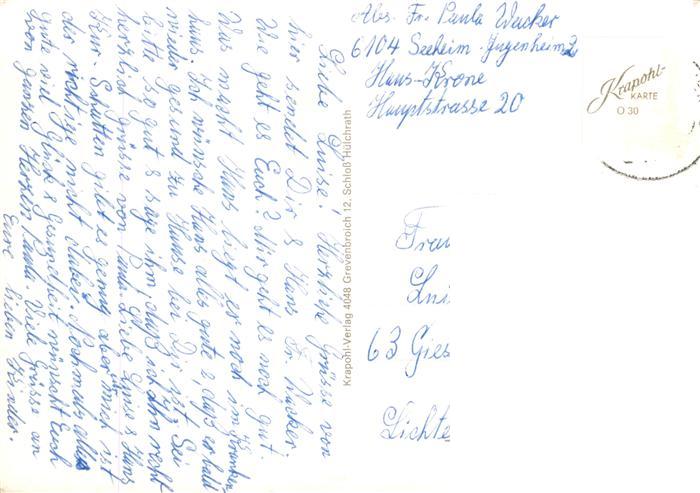 Abs. Fr. Paula Wucker
6104 Seeheim-Jugenheim 2
Haus-Krone
Hauptstrasse 20
Krapohl-
KARTE
O 30
Frau
Lui
63 Gies
Lichte
Krapohl-Verlag 4048 Grevenbroich 12, Schloß Hülchrath
Liebe Luise! Herzliche Grüsse von
hier sendet Dir & Hans Fr. Wucker.
Wie geht es Euch? Mir geht es noch gut.
Was macht Hans liegt er noch im Kranken
haus. Ich wünsche Hans alles gute & daß er bald
wieder gesund zu Hause bei Dir ist. Sei
bitte so gut & sage ihm, daß ich ihn recht
herzlich grüsse von Paula. Liebe Luise & Hans
hier Schatten gibt es genug aber für mich ist
der richtige nicht dabei. Nochmals alles
gute viel Glück & Gesundheit wünscht Euch
von ganzen Herzen Paula. Viele Grüsse an
Eure lieben Kinder.